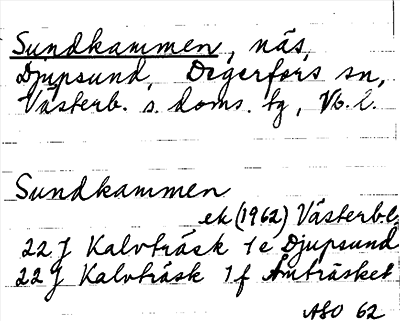 Sundkammen, näs,
Djupsund, Degerfors sn,
Västerb. s. doms. tg, Vb. l.
Sundkammen
ek (1962) Västerb. l.
22 J Kalvträsk 1 e Djupsund
22 J Kalvträsk 1 f Åmträsket
ASO 62